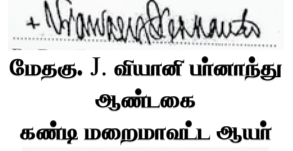 + Vianney Fernando
மேதகு. J. வியானி பர்னாந்து
ஆண்டகை
கண்டி மறைமாவட்ட ஆயர்